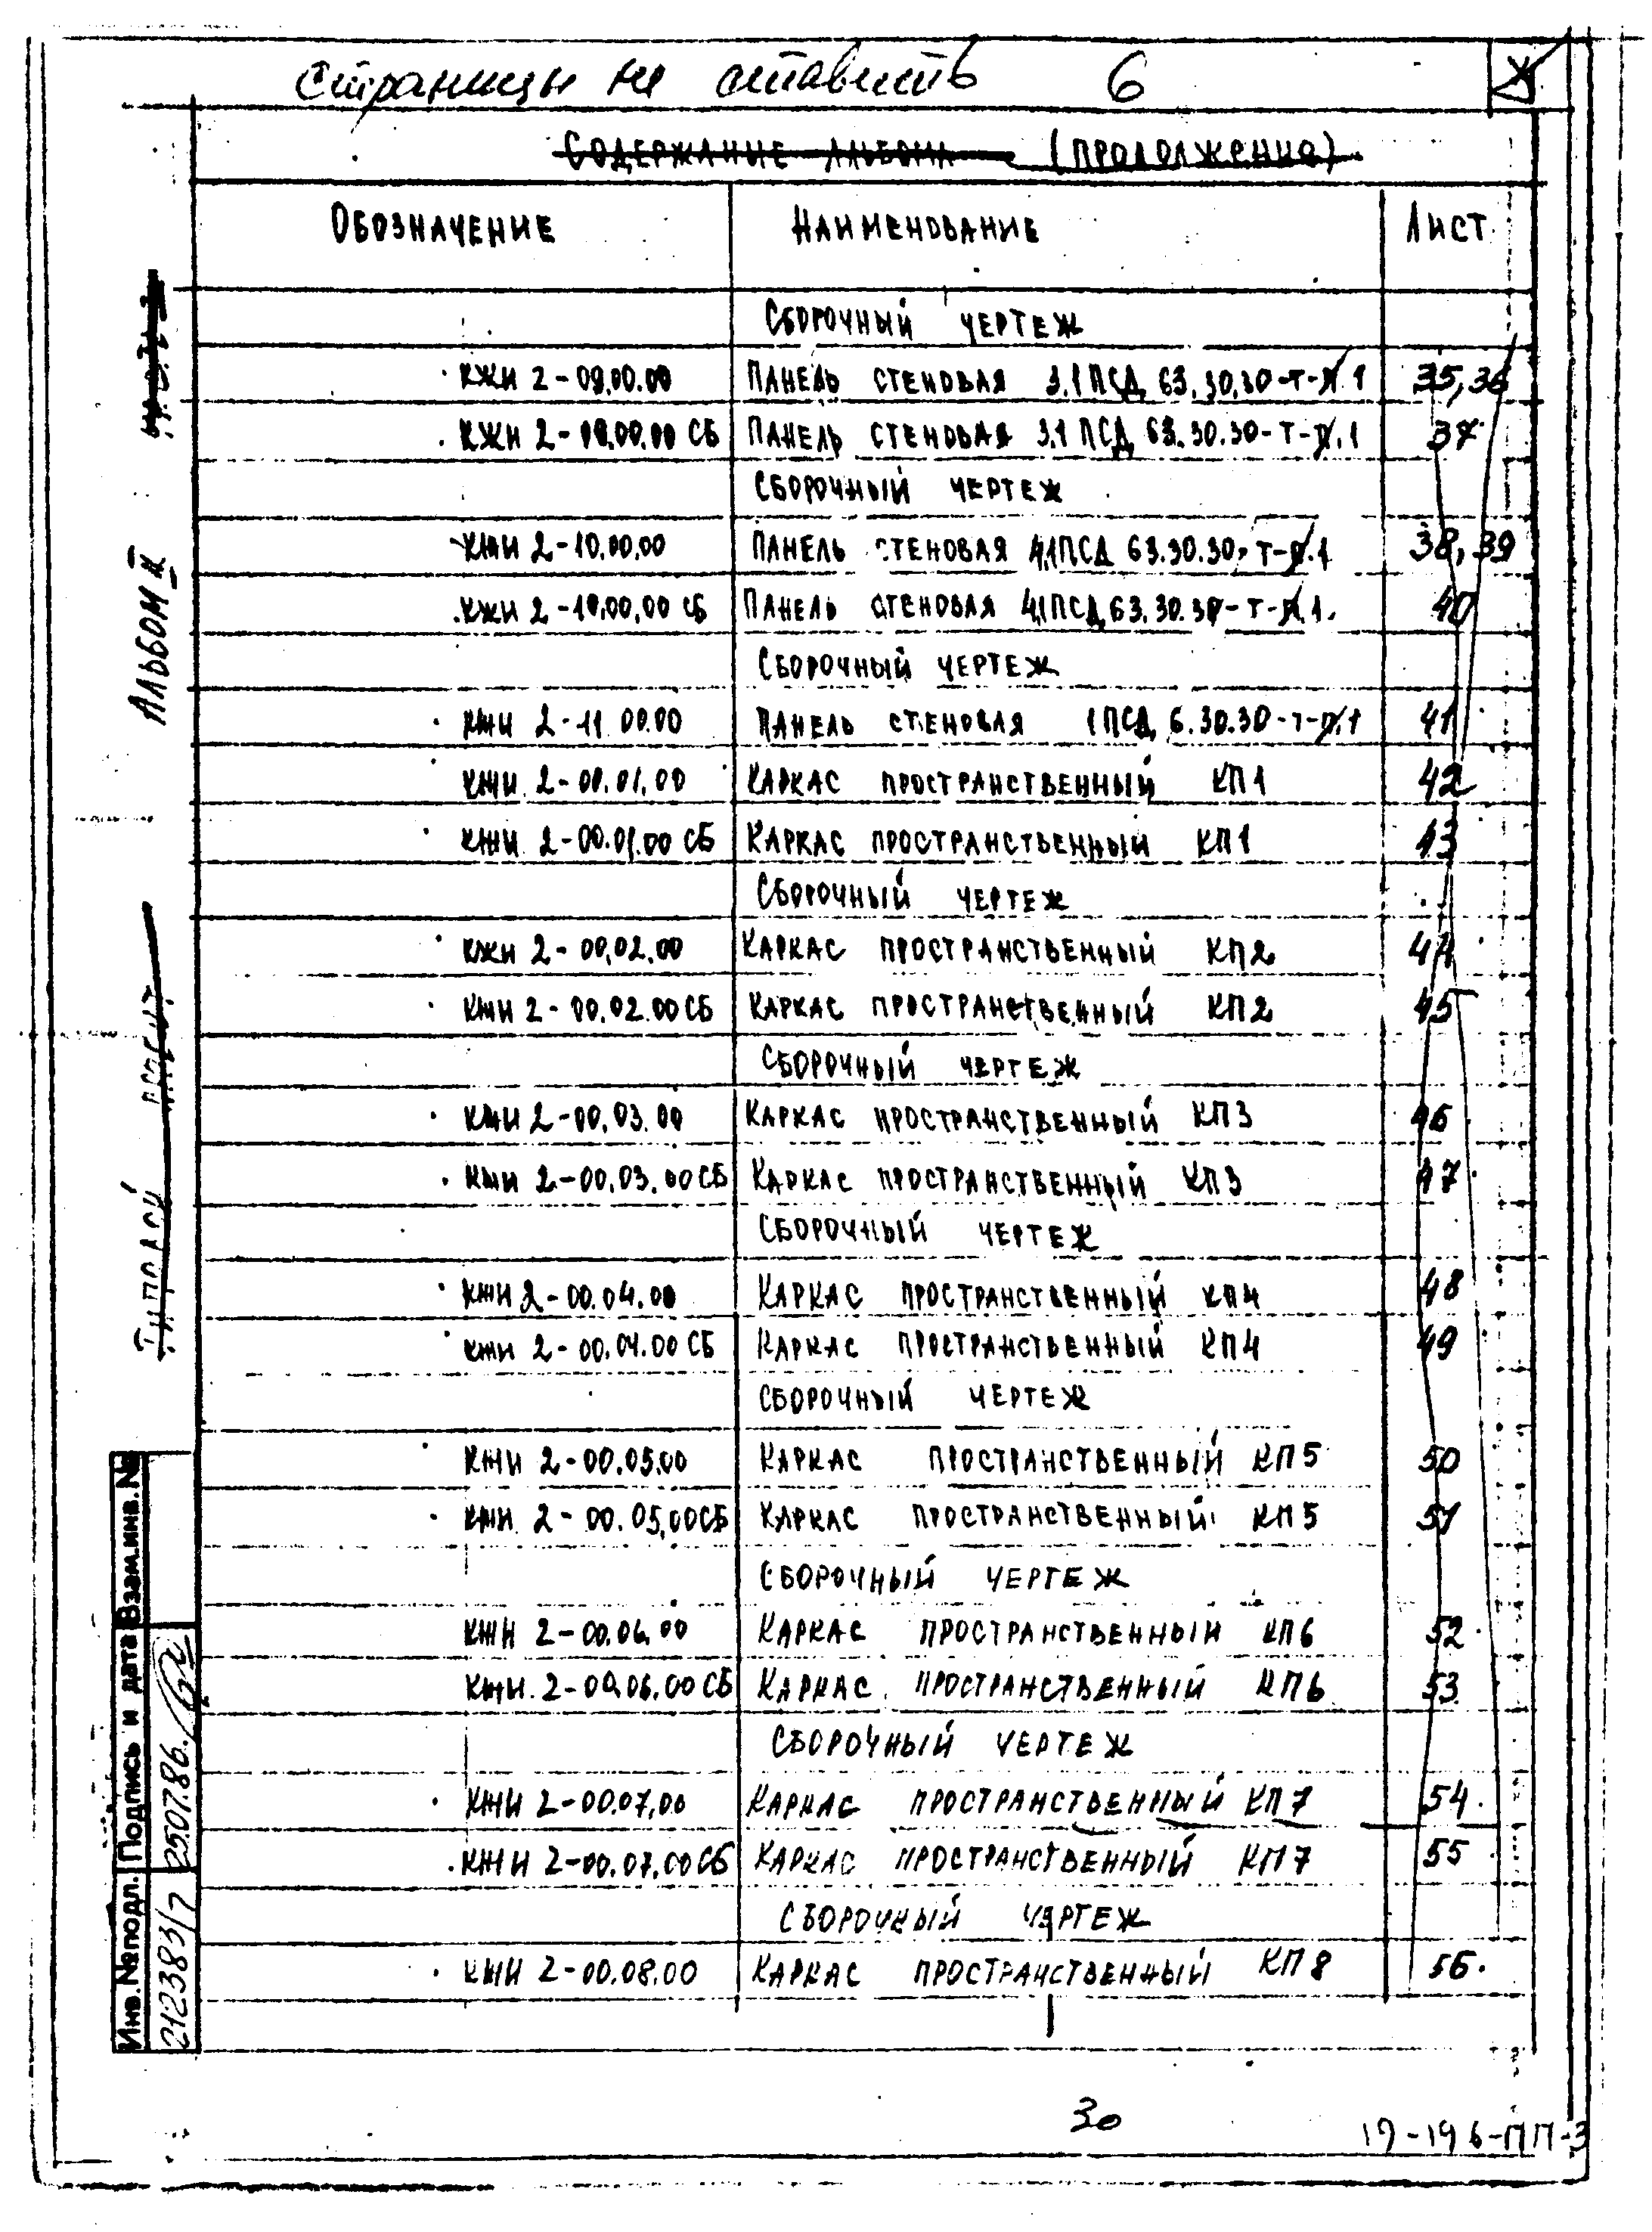 Страницы не ставить 6
СОДЕРЖАНИЕ АЛЬБОМА (ПРОДОЛЖЕНИЕ)
ОБОЗНАЧЕНИЕ НАИМЕНОВАНИЕ ЛИСТ
СБОРОЧНЫЙ ЧЕРТЕЖ
КЖИ 2-09.00.00 ПАНЕЛЬ СТЕНОВАЯ 3.1ПСД 63.30.30-Т-П.1 35,36
КЖИ 2-09.00.00 СБ ПАНЕЛЬ СТЕНОВАЯ 3.1ПСД 63.30.30-Т-П.1 37
СБОРОЧНЫЙ ЧЕРТЕЖ
КЖИ 2-10.00.00 ПАНЕЛЬ СТЕНОВАЯ 4.1ПСД 63.30.30-Т-П.1 38,39
КЖИ 2-10.00.00 СБ ПАНЕЛЬ СТЕНОВАЯ 4.1ПСД 63.30.30-Т-П.1. 40
СБОРОЧНЫЙ ЧЕРТЕЖ
КЖИ 2-11.00.00 ПАНЕЛЬ СТЕНОВАЯ 1ПСД 6.30.30-Т-П.1 41
КЖИ 2-00.01.00 КАРКАС ПРОСТРАНСТВЕННЫЙ КП1 42
КЖИ 2-00.01.00 СБ КАРКАС ПРОСТРАНСТВЕННЫЙ КП1 43
СБОРОЧНЫЙ ЧЕРТЕЖ
КЖИ 2-00.02.00 КАРКАС ПРОСТРАНСТВЕННЫЙ КП2 44
КЖИ 2-00.02.00 СБ КАРКАС ПРОСТРАНСТВЕННЫЙ КП2 45
СБОРОЧНЫЙ ЧЕРТЕЖ
КЖИ 2-00.03.00 КАРКАС ПРОСТРАНСТВЕННЫЙ КП3 46
КЖИ 2-00.03.00 СБ КАРКАС ПРОСТРАНСТВЕННЫЙ КП3 47
СБОРОЧНЫЙ ЧЕРТЕЖ
КЖИ 2-00.04.00 КАРКАС ПРОСТРАНСТВЕННЫЙ КП4 48
КЖИ 2-00.04.00 СБ КАРКАС ПРОСТРАНСТВЕННЫЙ КП4 49
СБОРОЧНЫЙ ЧЕРТЕЖ
КЖИ 2-00.05.00 КАРКАС ПРОСТРАНСТВЕННЫЙ КП5 50
КЖИ 2-00.05.00 СБ КАРКАС ПРОСТРАНСТВЕННЫЙ КП5 51
СБОРОЧНЫЙ ЧЕРТЕЖ
КЖИ 2-00.06.00 КАРКАС ПРОСТРАНСТВЕННЫЙ КП6 52
КЖИ 2-00.06.00 СБ КАРКАС ПРОСТРАНСТВЕННЫЙ КП6 53
СБОРОЧНЫЙ ЧЕРТЕЖ
КЖИ 2-00.07.00 КАРКАС ПРОСТРАНСТВЕННЫЙ КП7 54
КЖИ 2-00.07.00 СБ КАРКАС ПРОСТРАНСТВЕННЫЙ КП7 55
СБОРОЧНЫЙ ЧЕРТЕЖ
КЖИ 2-00.08.00 КАРКАС ПРОСТРАНСТВЕННЫЙ КП8 56
АЛЬБОМ II
ТИПОВОЙ ПРОЕКТ
Взам.инв.№
Подпись и дата 25.07.86.
Инв.№подл. 212383/7
30
19-196-ПП-3